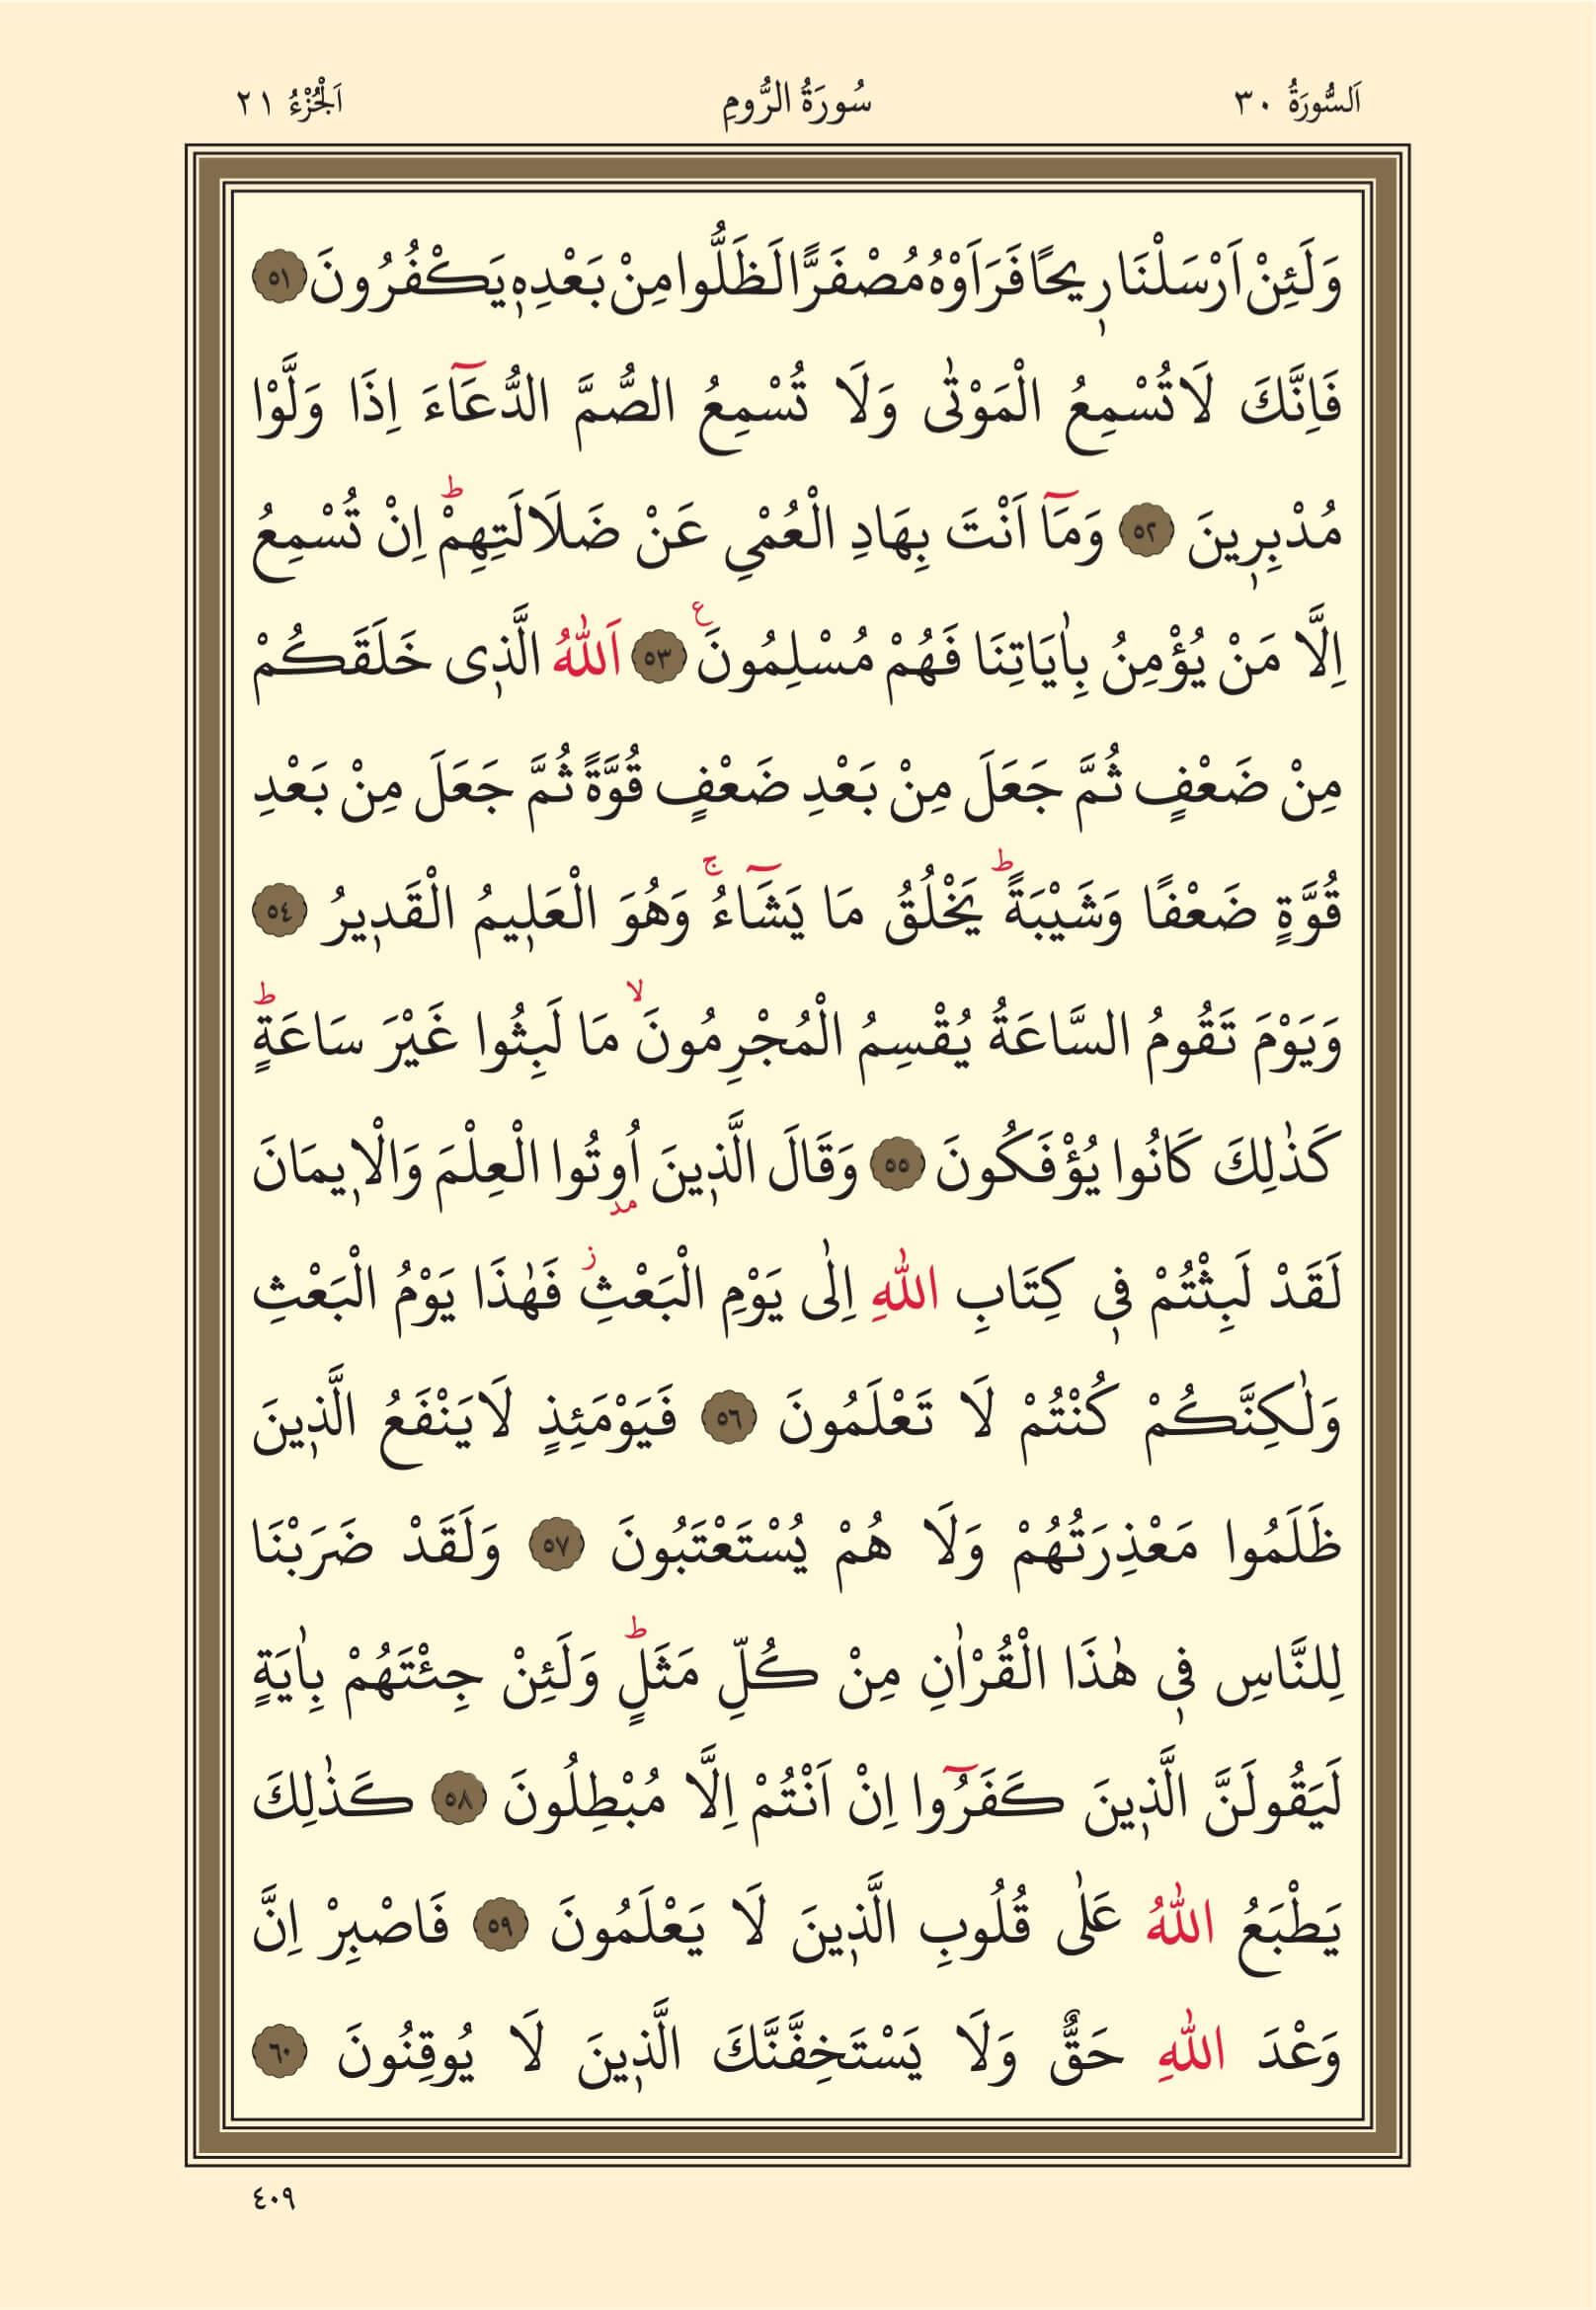 اَلسُّورَةُ ٣٠ سُورَةُ الرُّومِ اَلْجُزْءُ ٢١
وَلَئِنْ اَرْسَلْنَا رٖيحًا فَرَاَوْهُ مُصْفَرًّا لَظَلُّوا مِنْ بَعْدِهٖ يَكْفُرُونَ ٥١
فَاِنَّكَ لَا تُسْمِعُ الْمَوْتٰى وَلَا تُسْمِعُ الصُّمَّ الدُّعَٓاءَ اِذَا وَلَّوْا
مُدْبِرٖينَ ٥٢ وَمَٓا اَنْتَ بِهَادِ الْعُمْيِ عَنْ ضَلَالَتِهِمْؕ اِنْ تُسْمِعُ
اِلَّا مَنْ يُؤْمِنُ بِاٰيَاتِنَا فَهُمْ مُسْلِمُونَࣖ ٥٣ اَللّٰهُ الَّذٖى خَلَقَكُمْ
مِنْ ضَعْفٍ ثُمَّ جَعَلَ مِنْ بَعْدِ ضَعْفٍ قُوَّةً ثُمَّ جَعَلَ مِنْ بَعْدِ
قُوَّةٍ ضَعْفًا وَشَيْبَةًؕ يَخْلُقُ مَا يَشَٓاءُۚ وَهُوَ الْعَلٖيمُ الْقَدٖيرُ ٥٤
وَيَوْمَ تَقُومُ السَّاعَةُ يُقْسِمُ الْمُجْرِمُونَۙ مَا لَبِثُوا غَيْرَ سَاعَةٍؕ
كَذٰلِكَ كَانُوا يُؤْفَكُونَ ٥٥ وَقَالَ الَّذٖينَ اُو۫تُوا الْعِلْمَ وَالْاٖيمَانَ
لَقَدْ لَبِثْتُمْ فٖى كِتَابِ اللّٰهِ اِلٰى يَوْمِ الْبَعْثِؗ فَهٰذَا يَوْمُ الْبَعْثِ
وَلٰكِنَّكُمْ كُنْتُمْ لَا تَعْلَمُونَ ٥٦ فَيَوْمَئِذٍ لَا يَنْفَعُ الَّذٖينَ
ظَلَمُوا مَعْذِرَتُهُمْ وَلَا هُمْ يُسْتَعْتَبُونَ ٥٧ وَلَقَدْ ضَرَبْنَا
لِلنَّاسِ فٖى هٰذَا الْقُرْاٰنِ مِنْ كُلِّ مَثَلٍؕ وَلَئِنْ جِئْتَهُمْ بِاٰيَةٍ
لَيَقُولَنَّ الَّذٖينَ كَفَرُٓوا اِنْ اَنْتُمْ اِلَّا مُبْطِلُونَ ٥٨ كَذٰلِكَ
يَطْبَعُ اللّٰهُ عَلٰى قُلُوبِ الَّذٖينَ لَا يَعْلَمُونَ ٥٩ فَاصْبِرْ اِنَّ
وَعْدَ اللّٰهِ حَقٌّ وَلَا يَسْتَخِفَّنَّكَ الَّذٖينَ لَا يُوقِنُونَ ٦٠
٤٠٩